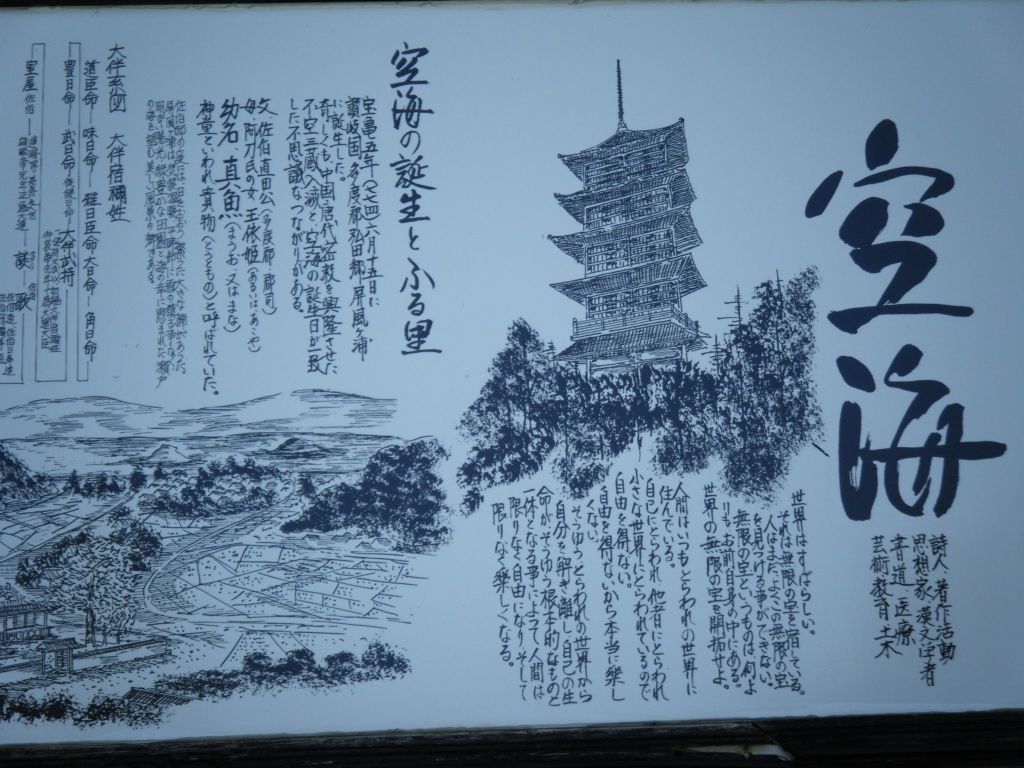 空海
詩人 著作活動
思想家 漢文学者
書道 医療
芸術 教育 土木
世界はすばらしい。
それは無限の宝を宿している。
人はまだよくこの無限の宝
を見つける事ができない。
無限の宝というものは何より
もお前自身の中にある。
世界の無限の宝を開拓せよ。
人間はいつもとらわれの世界に
住んでいる。
自己にとらわれ、他者にとらわれ
小さな世界にとらわれているので
自由を得ない。
自由を得ないから本当に楽し
くない。
そうゆうとらわれの世界から
自分を解き離し自己の生
命がそうゆう根本的なものと
一体となる事によって人間は
限りなく自由になりそして
限りなく楽しくなる。
空海の誕生とふる里
宝亀五年(七七四)六月十五日に
讃岐国、多度郡弘田郷、屏風ヶ浦
に誕生した。
奇しくも、中国唐代、密教を興隆させた
不空三蔵入滅と、空海の誕生日が一致
した不思議なつながりがある。
父 佐伯直田公(多度郡・郡司)
母 阿刀氏の女、玉依姫(あるいは、あこや)
幼名、真魚(まうお、又はまな)
神童といわれ、貴物(とうともの)と呼ばれていた。
大伴系図 大伴宿禰姓
道臣命―味日命―稚日臣命―大日命―角日命―
豊日命―武日命―大伴武持
室屋 佐伯―談―歌